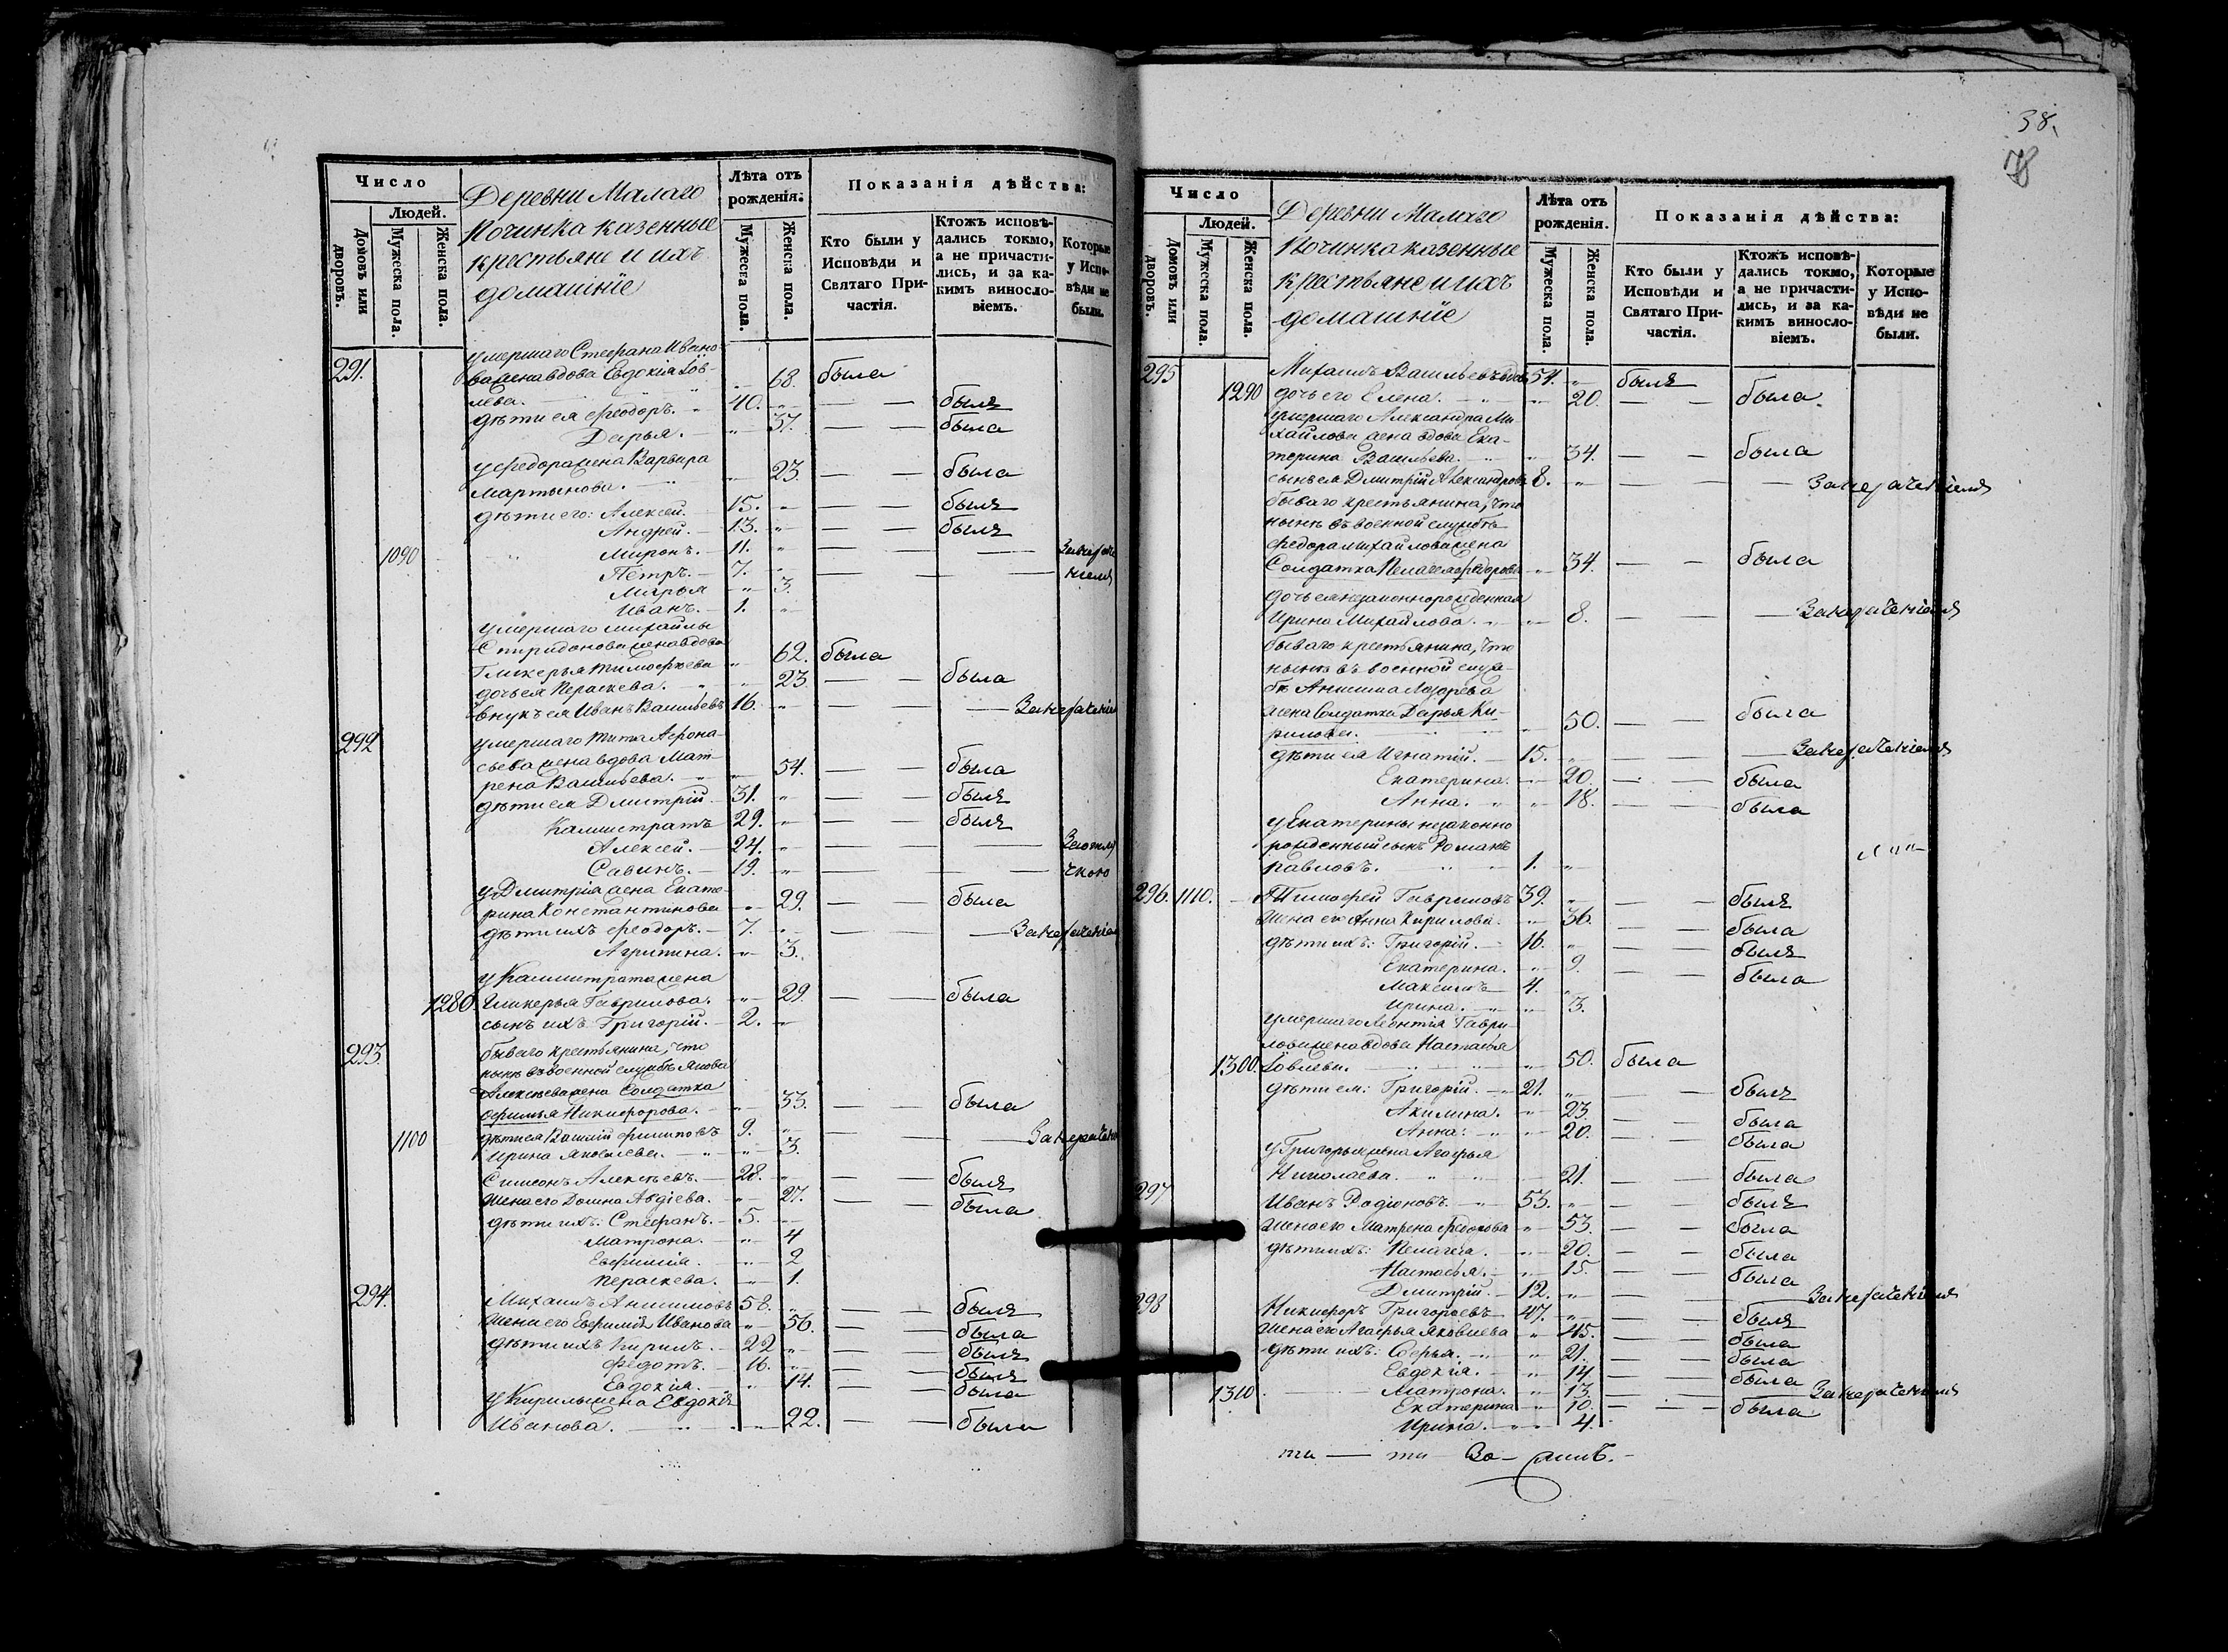 Число
Людей.
Домовъ или дворовъ.
Мужеска пола.
Женска пола.
Деревни Малаго
Починка казенные
крестьяне и ихъ
домашніе
Лѣта отъ рожденія:
Мужеска пола.
Женска пола.
Показанія дѣйства:
Кто были у Исповѣди и Святаго Причастія.
Ктожъ исповѣдались токмо, а не причастились, и за какимъ винословіемъ.
Которые у Исповѣди не были.
291. умершаго Стефана Ивано-
ва жена вдова Евдокія Іов-
лева. 68. была
дѣти ея Феодоръ. 40. былъ
Дарья. 37. была
у Федора жена Варвара
Мартынова. 23. была
дѣти его: Алексей. 15. былъ
Андрей. 13. былъ
1090 Миронъ. 11.
Петръ. 7.
Марья 3.
Иванъ. 1.
умершаго Михайлы
Спиридонова жена вдова
Гликерья Тимофеева 62. была
дочь ея Параскева. 23 была
внукъ ея Иванъ Васильевъ 16.
292 умершаго Тита Афона-
сьева жена вдова Мат-
рена Васильева. 54. была
дѣти ея Дмитрій 31. былъ
Калистратъ 29. былъ
Алексей. 24.
Савинъ. 19.
у Дмитрія жена Екате-
рина Константинова 29. была
дѣти ихъ Феодоръ. 7.
Агрипина. 3.
у Калистрата жена
1280. Гликерья Гаврилова. 29. была
сынъ ихъ Григорій. 2.
293. бываго крестьянина, что
нынѣ въ военной службѣ Якова
Алексѣева жена Солдатка
Офимья Никифорова. 33. была
1100 дѣти ея Василій Филиповъ 9.
Ирина Яковлева. 3.
Симеонъ Алексѣевъ. 28. былъ
жена его Домна Авдіева. 27. была
дѣти ихъ: Стефанъ. 5.
Матрона. 4
Евфимія. 2
Параскева. 1.
294. Михаилъ Анисимовъ 58. былъ
жена его Евфимія Иванова 56. была
дѣти ихъ Кирилъ. 22 былъ
Федотъ. 16. былъ
Евдокія. 14. была
у Кирилы жена Евдокія
Иванова. 22. была
38.
Число
Людей.
Домовъ или дворовъ.
Мужеска пола.
Женска пола.
Деревни Малаго
Починка казенные
крестьяне и ихъ
домашніе
Лѣта отъ рожденія.
Мужеска пола.
Женска пола.
Показанія дѣйства:
Кто были у Исповѣди и Святаго Причастія.
Ктожъ исповѣдались токмо, а не причастились, и за какимъ винословіемъ.
Которые у Исповѣди не были.
295 Михаилъ Васильевъ вдовъ 54. былъ
1290 дочь его Елена. 20. была
умершаго Александра Ми-
хайлова жена вдова Ека-
терина Васильева. 34. была
сынъ ея Дмитрій Александровъ 8.
бываго крестьянина, что
нынѣ въ военной службѣ
Федора Михайлова жена
Солдатка Пелагея Федорова 34. была
дочь ея незаконнорожденная
Ирина Михайлова. 8.
бываго крестьянина, что
нынѣ въ военной служ-
бѣ Анисима Лазарева
жена Солдатка Дарья Ки-
рилова. 50. была
дѣти ея Игнатій. 15.
Екатерина. 20. была
Анна. 18. была
у Екатерины незаконно
рожденный сынъ Романъ
Павловъ. 1.
296. 1110. Тимофей Гавриловъ 39. былъ
жена ег Анна Кирилова. 36. была
дѣти ихъ: Григорій. 16. былъ
Екатерина. 9. была
Максимъ 4.
Ирина. 3.
умершаго Леонтія Гаври-
лова жена вдова Настасья
1300. Іовлева. 50. была
дѣти ея: Григорій. 21. былъ
Акилина. 23. была
Анна. 20. была
у Григорья жена Агафья
Николаева. 21. была
297 Иванъ Родіоновъ. 53. былъ
жена его Матрена Федорова 53. была
дѣти ихъ: Пелагея. 20. была
Настасья. 15. была
Дмитрій. 12.
298 Никифоръ Григорьевъ 47. былъ
жена его Агафья Яковлева 45. была
дѣти ихъ: Софья. 21. была
Евдокія. 14. была
1310. Матрона. 13.
Екатерина 10. была
Ирина. 4.